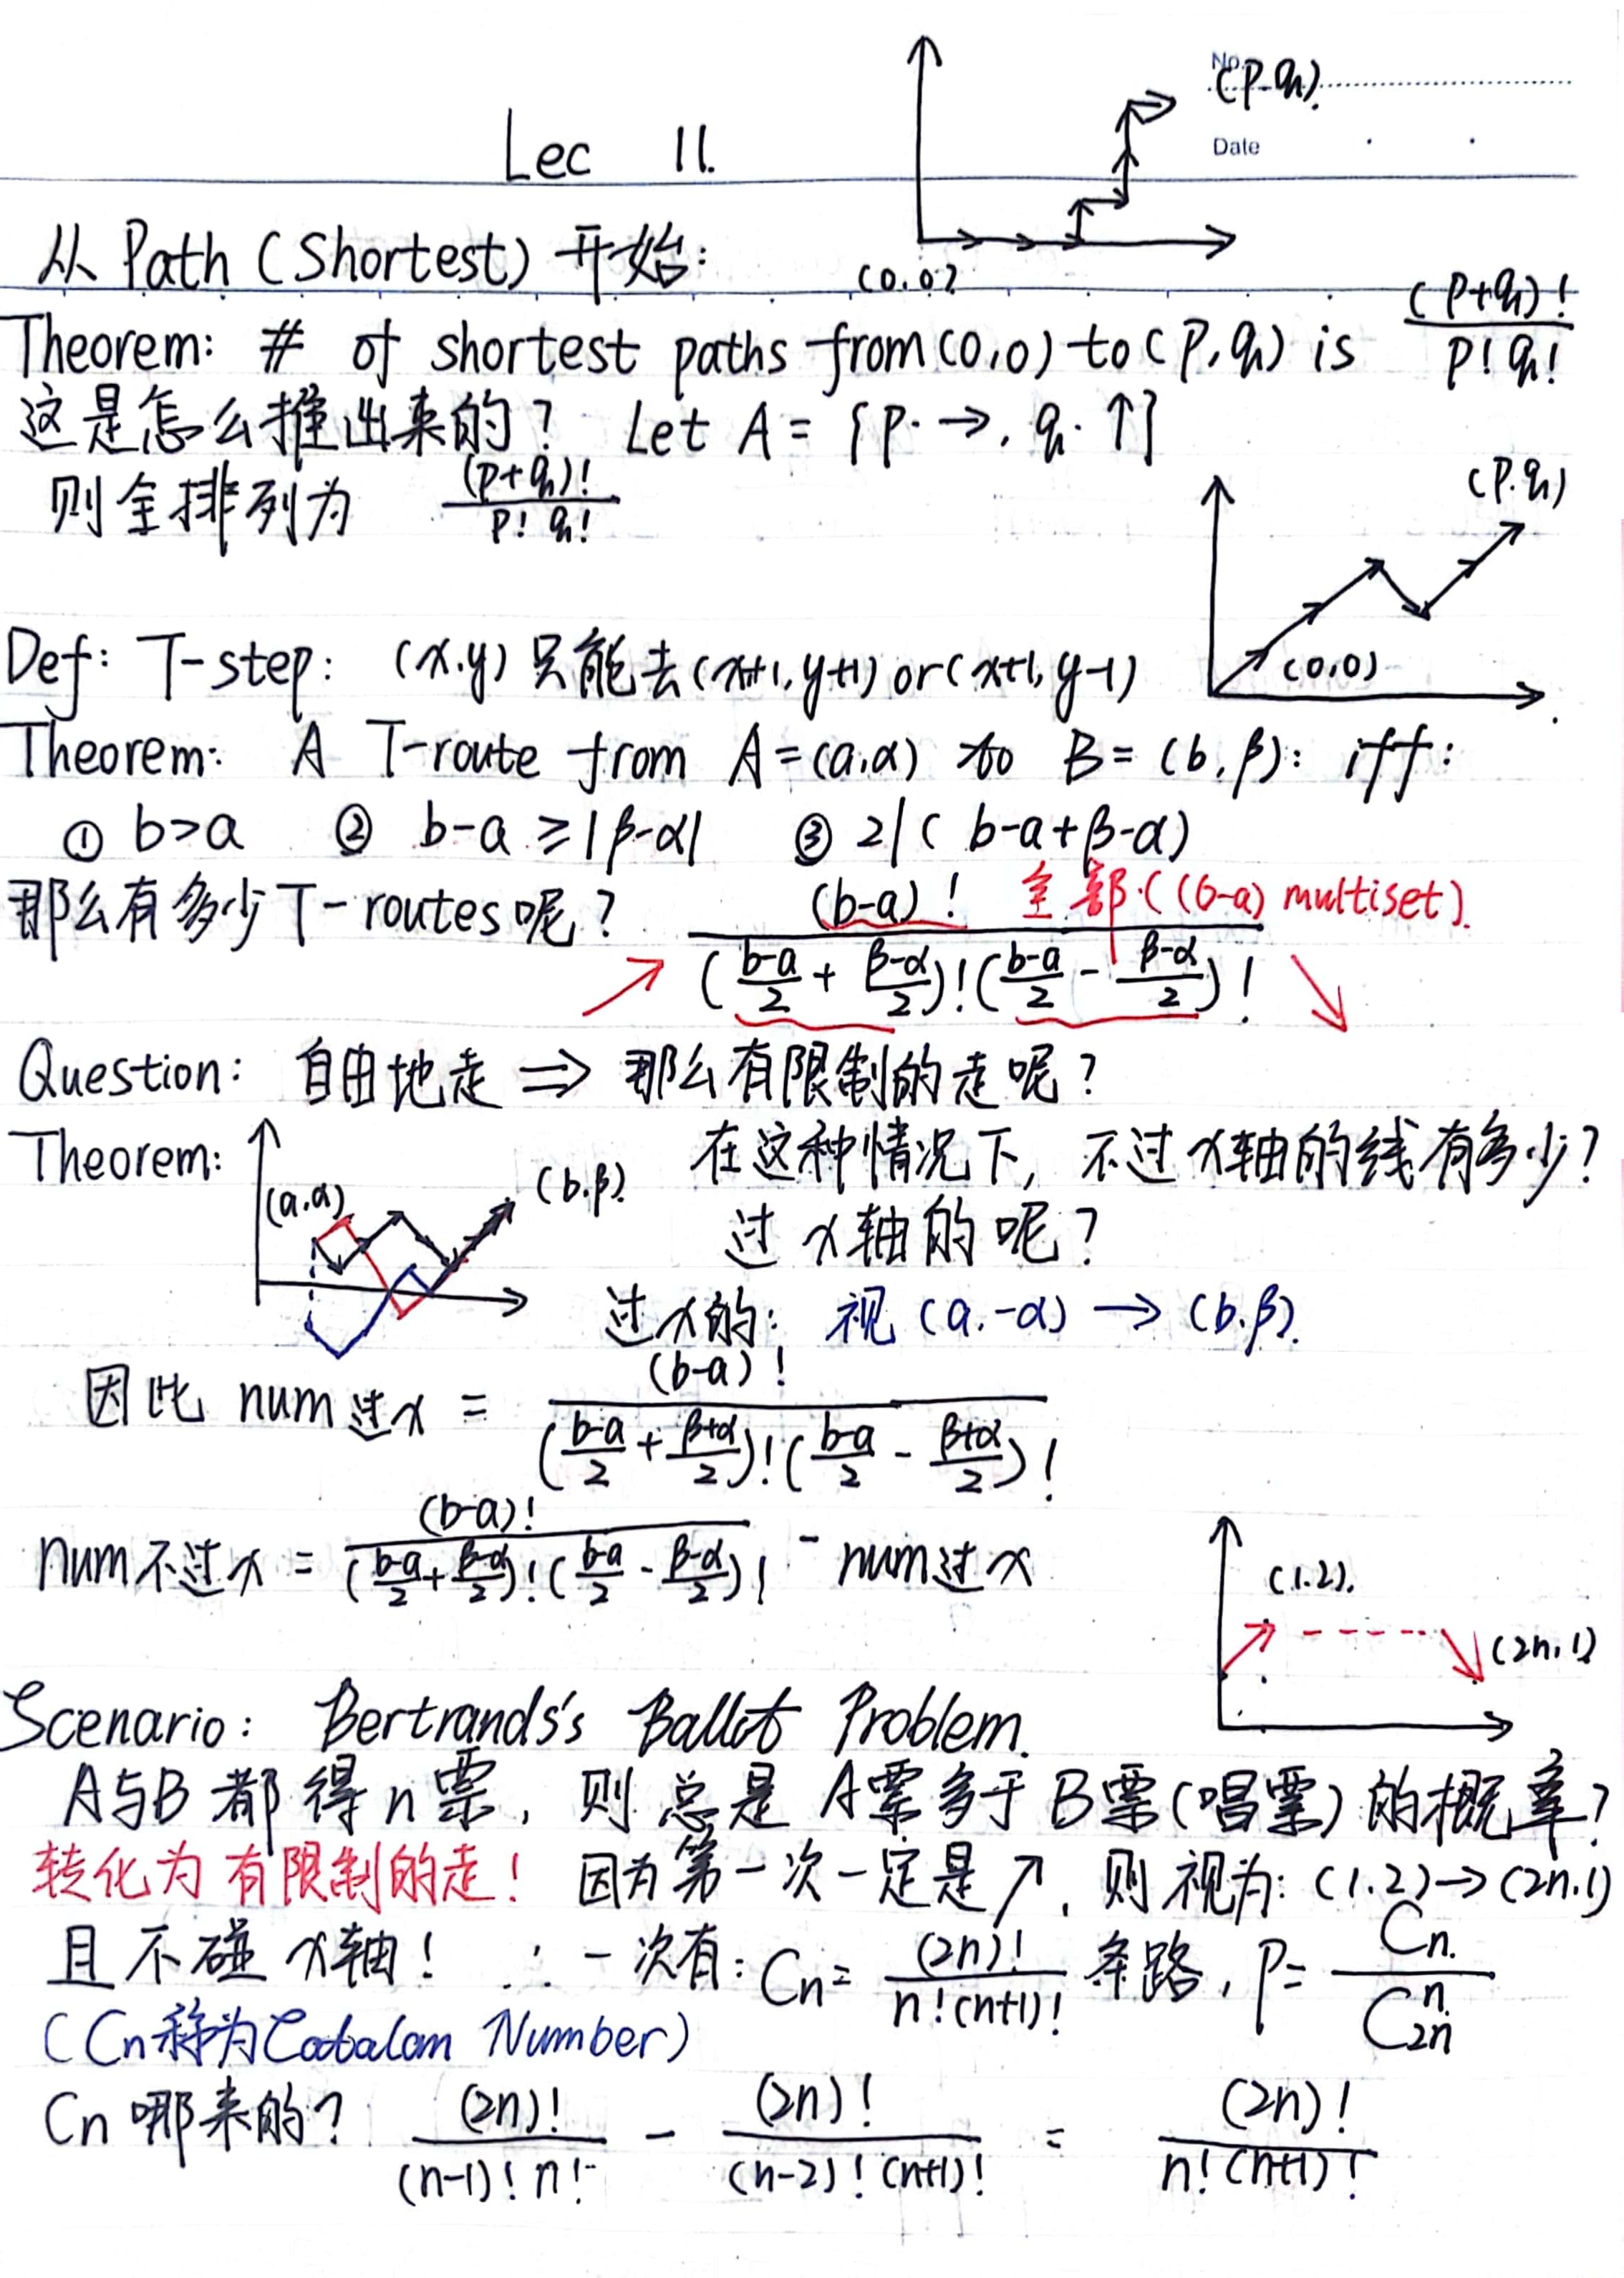 No.
(p.q).
Date
Lec 11.
从 Path (Shortest) 开始:
(0.0)
Theorem: # of shortest paths from (0,0) to (p,q) is (p+q)! / p! q!
这是怎么推出来的? Let A = {p·→, q·↑}
则全排列为 (p+q)! / p! q!
(p.q)
(0,0)
Def: T-step: (x.y) 只能去 (x+1, y+1) or (x+1, y-1)
Theorem: A T-route from A=(a,α) to B=(b,β): iff:
① b>a ② b-a ≥ |β-α| ③ 2|(b-a+β-α)
那么有多少 T-routes 呢? (b-a)! / ((b-a)/2 + (β-α)/2)! ((b-a)/2 - (β-α)/2)!
全部 ((b-a) multiset).
↗ ↘
Question: 自由地走 ⇒ 那么有限制的走呢?
Theorem: 在这种情况下, 不过x轴的线有多少?
(a.α) (b.β)
过x轴的呢?
过x的: 视 (a.-α) → (b.β).
因此 num过x = (b-a)! / ((b-a)/2 + (β+α)/2)! ((b-a)/2 - (β+α)/2)!
num不过x = (b-a)! / ((b-a)/2 + (β-α)/2)! ((b-a)/2 - (β-α)/2)! - num过x
(1.2).
(2n,1)
Scenario: Bertrands's Ballot Problem.
A与B都得n票, 则总是A票多于B票(唱票)的概率?
转化为有限制的走! 因为第一次一定是↗, 则视为: (1.2)→(2n.1)
且不碰x轴! ∴一次有: Cn = (2n)! / n!(n+1)! 条路, P = Cn / C_{2n}^{n}
(Cn称为Catalan Number)
Cn哪来的? (2n)! / (n-1)! n! - (2n)! / (n-2)! (n+1)! = (2n)! / n! (n+1)!